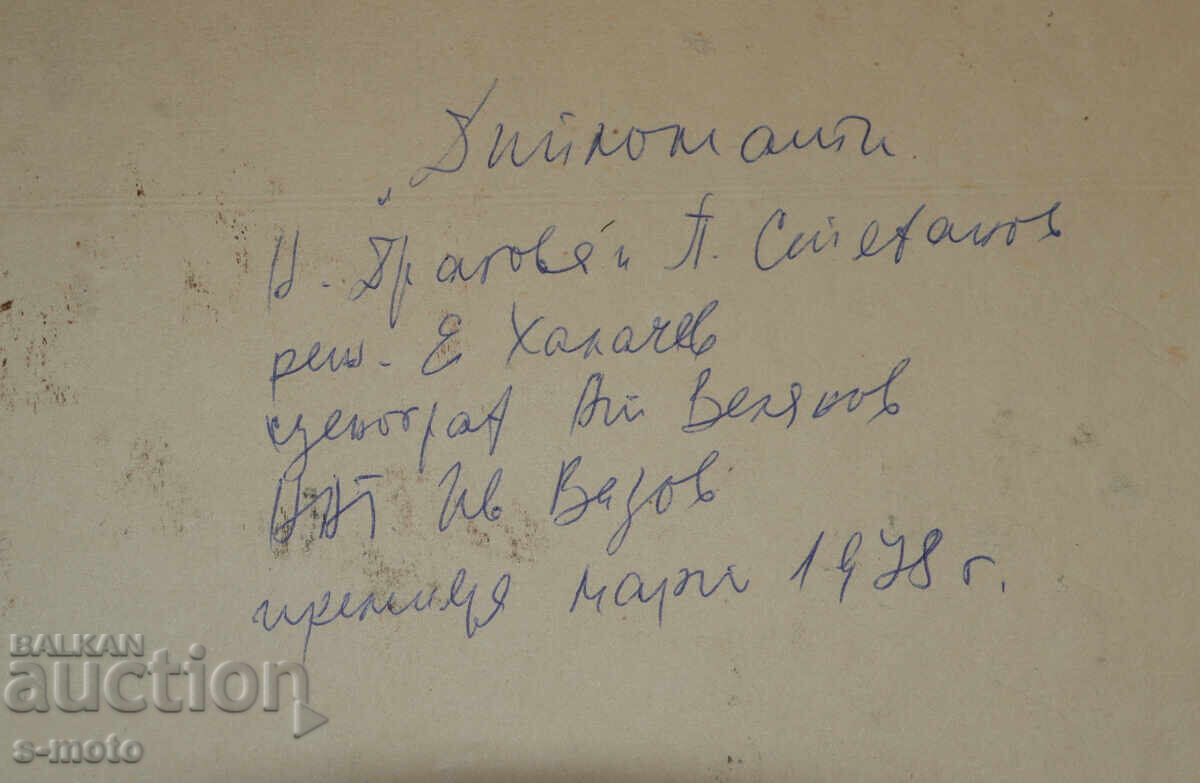 „Дипломати
Н. Драговя и П. Стефанов
реж. Е Халачев
сценограф Ат Велянов
НАТ Ив Вазов
премиера март 1978 г.
BALKAN
auction
s-moto